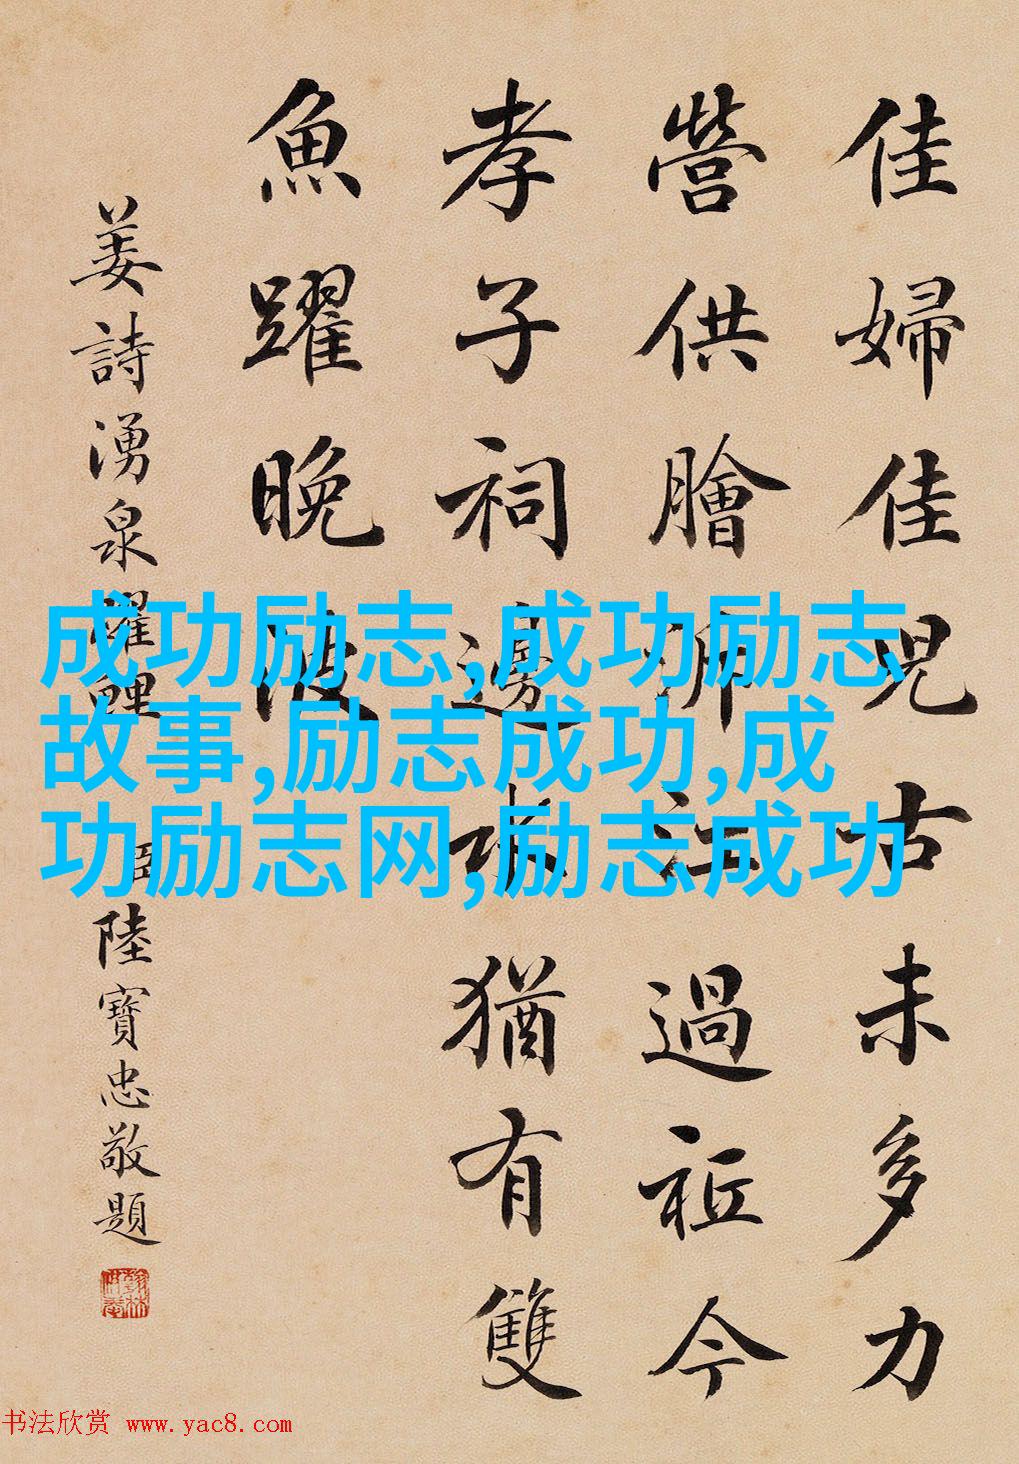 佳婦佳兒古未多力
營供膾泝江過祗今
孝子祠邊水猶有雙
魚躍晚波
姜詩湧泉躍鯉 臣陸寶忠敬題
成功励志,成功励志
故事,励志成功,成
功励志网,励志成功
书法欣赏 www.yac8.com